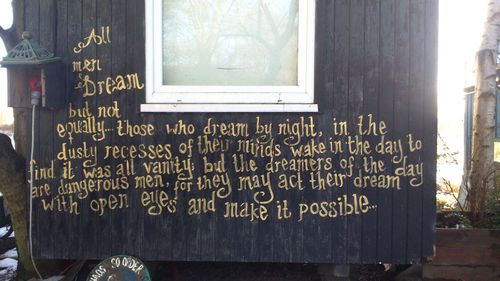 All
men
Dream
but not
equally... those who dream by night, in the
dusty recesses of their minds wake in the day to
find it was all vanity; but the dreamers of the day
are dangerous men, for they may act their dream
with open eyes and make it possible...
SO ORDER